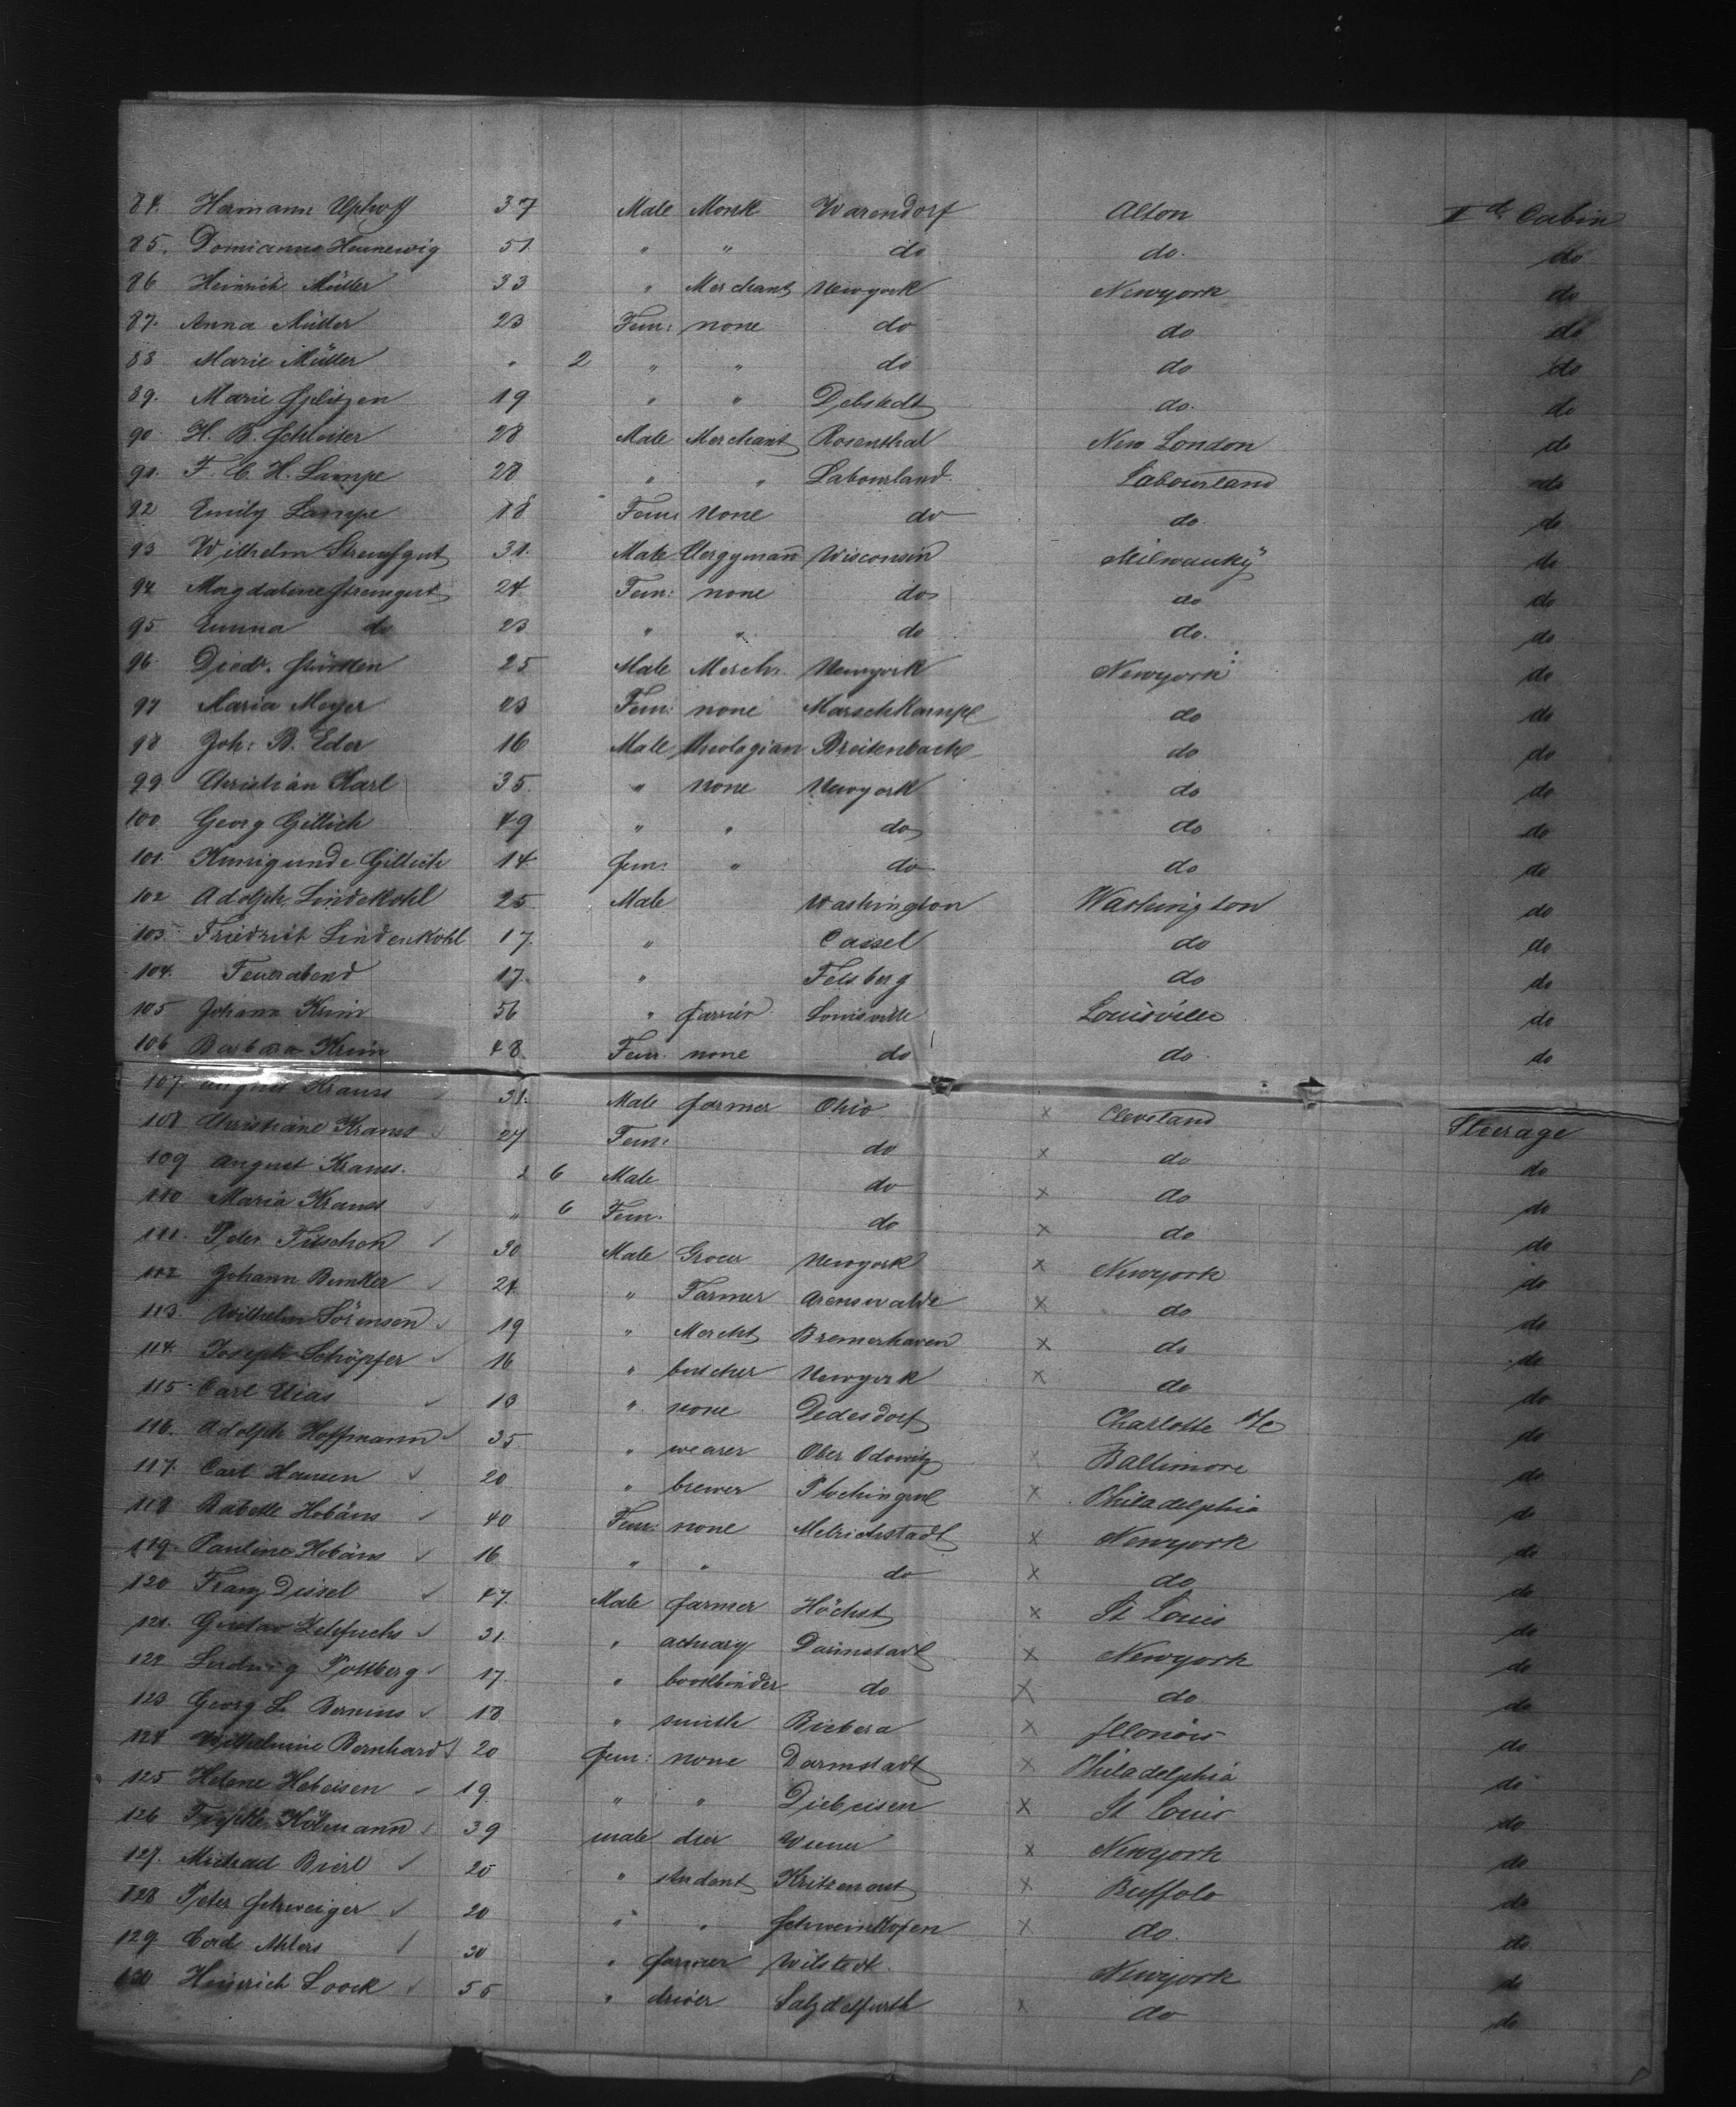 84. Hermann Uphoff 37 Male Monk Warendorf Alton IId Cabin
85. Domianus Hennewig 51 " " do do. do
86 Heinrich Müller 33 " Merchant Newyork Newyork do
87. Anna Müller 23 Fem: none do do do
88 Marie Müller " 2 " " do do do
89. Marie 19 " " Debstedt do. do
90 H. B. Schleiter 28 Male Merchant Rosenthal New London do
91. F. C. H. Lampe 28 " " Labourland Labourland do
92 Emily Lampe 18 Fem: None do do. do
93 Wilhelm 31. Male Clergyman Wisconsin Milwauky do
94 Magdalene 24 Fem: none do do do
95 Emma do 23 " " do do. do
96. Diedr. 25 Male Merch. Newyork Newyork do
97 Maria Meyer 23 Fem: none Marschkampe do do
98 Joh: B. Eder 16 Male theologian Breitenbach do do
99 Christian Karl 35. " none Newyork do do
100 Georg Gillich 49 " " do do do
101. Kunigunde Gillich 14 fem: " do do do
102 Adolph. Lindekohl 25 Male Washington Washington do
103 Friedrich Lindenkohl 17. " Cassel do do
104. Feuerabend 17. " Felsberg do do
105 Johann Krim 56 " farmer Louisville Louisville do
106 Barbara Krim 48. Fem. none do do. do
107. August Krauss 31. Male farmer Ohio x Cleveland Steerage
108 Christiane Krauss 27 Fem: do x do do
109 August Krauss. 2 6 Male do x do do
110 Maria Krauss " 6 Fem. do x do do
111. Peter Fitschen 30 Male Grocer Newyork x Newyork do
112 Johann Bunker 24 " Farmer Arenswalde x do do
113. Wilhelm Sörensen 19 " Mercht Bremerhaven x do do
114. Joseph Schöpfer 16 " butcher Newyork x do do
115 Carl 13 " none Dedesdorf Charlotte do
116. Adolph Hoffmann 35. " wearer Ober Odowitz x Baltimore do
117. Carl Hansen 20 " brewer x Philadelphia do
118 Babette Hobäns 40 Fem: none Melrichstadt x Newyork do
119. Pauline Hobäns 16 " " do x do do
120 Franz Dissel 47. Male farmer Höchst x St Louis do
121. Gustav 31. " actuary Darmstadt x Newyork do
122 Ludwig Pottberg 17. " bookbinder do x do do
123 Georg L. 18 " smith Biebera x Illonois do
124 Wilhelmine Bernhard 20 fem: none Darmstadt x Philadelphia do
125 Helene Hebeisen 19. " " Diebeisen x St Louis do
126 39 male dier x Newyork do
127. Michael Bierl 20 " student x Buffalo do
128 Peter Schweiger 20 " " x do. do
129. Cord Ahlers 30 " farmer Wilstedt. Newyork do
130 Heinrich Loock 55 " driver Salzdetfurth x do do